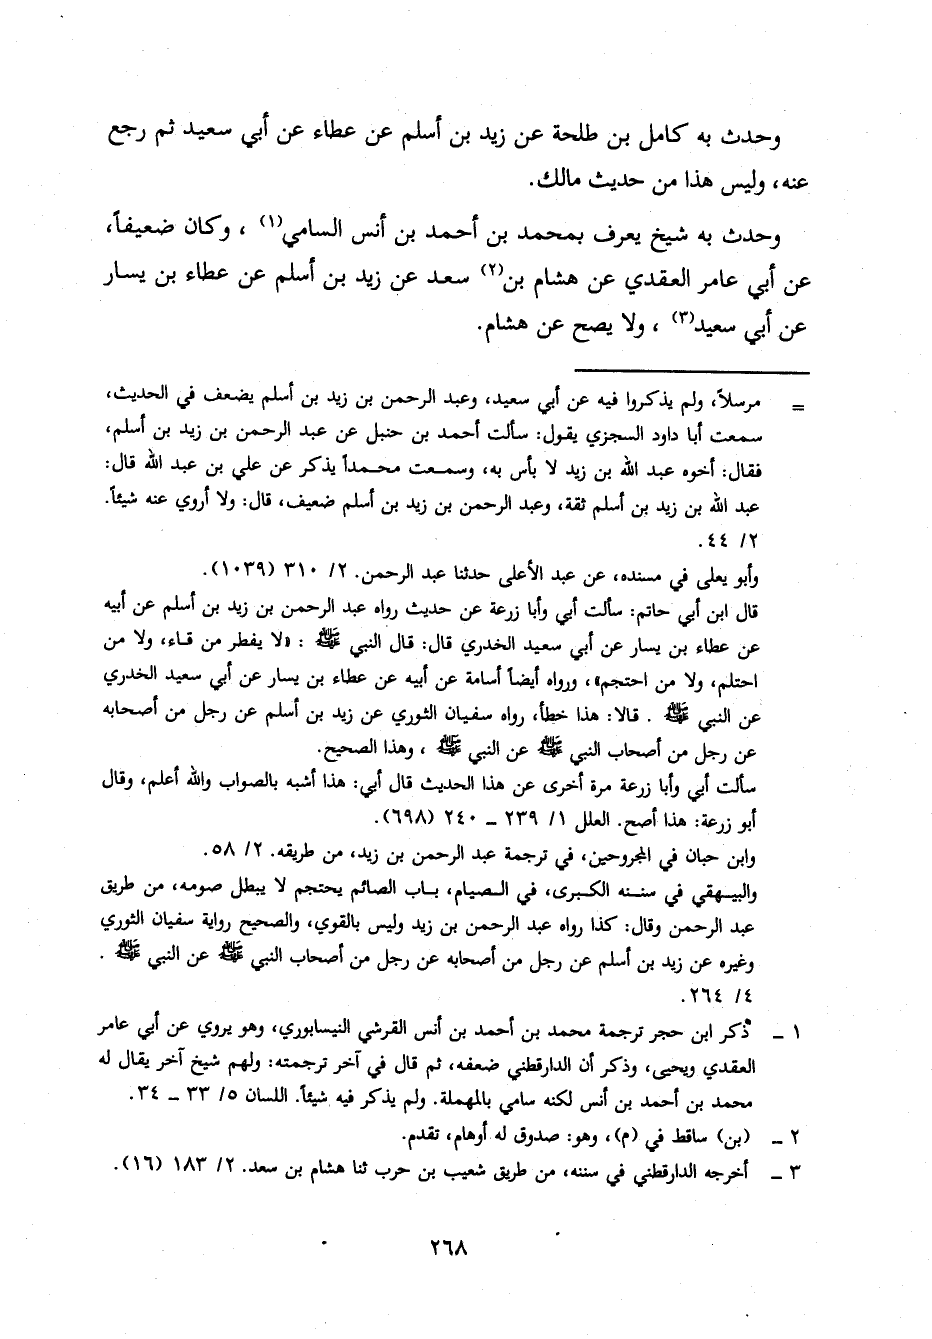 وحدث به كامل بن طلحة عن زيد بن أسلم عن عطاء عن أبي سعيد ثم رجع
عنه، وليس هذا من حديث مالك.
وحدث به شيخ يعرف بمحمد بن أحمد بن أنس السامي(١) ، وكان ضعيفاً،
عن أبي عامر العقدي عن هشام بن(٢) سعد عن زيد بن أسلم عن عطاء بن يسار
عن أبي سعيد(٣) ، ولا يصح عن هشام.
= مرسلاً، ولم يذكروا فيه عن أبي سعيد، وعبد الرحمن بن زيد بن أسلم يضعف في الحديث،
سمعت أبا داود السجزي يقول: سألت أحمد بن حنبل عن عبد الرحمن بن زيد بن أسلم،
فقال: أخوه عبد الله بن زيد لا بأس به، وسمعت محمداً يذكر عن علي بن عبد الله قال:
عبد الله بن زيد بن أسلم ثقة، وعبد الرحمن بن زيد بن أسلم ضعيف، قال: ولا أروي عنه شيئاً.
٢/ ٤٤.
وأبو يعلى في مسنده، عن عبد الأعلى حدثنا عبد الرحمن. ٢/ ٣١٠ (١٠٣٩).
قال ابن أبي حاتم: سألت أبي وأبا زرعة عن حديث رواه عبد الرحمن بن زيد بن أسلم عن أبيه
عن عطاء بن يسار عن أبي سعيد الخدري قال: قال النبي ﷺ : «لا يفطر من قاء، ولا من
احتلم، ولا من احتجم»، ورواه أيضاً أسامة عن أبيه عن عطاء بن يسار عن أبي سعيد الخدري
عن النبي ﷺ . قالا: هذا خطأ، رواه سفيان الثوري عن زيد بن أسلم عن رجل من أصحابه
عن رجل من أصحاب النبي ﷺ عن النبي ﷺ ، وهذا الصحيح.
سألت أبي وأبا زرعة مرة أخرى عن هذا الحديث قال أبي: هذا أشبه بالصواب والله أعلم، وقال
أبو زرعة: هذا أصح. العلل ١/ ٢٣٩ ــ ٢٤٠ (٦٩٨).
وابن حبان في المجروحين، في ترجمة عبد الرحمن بن زيد، من طريقه. ٢/ ٥٨.
والبيهقي في سننه الكبرى، في الصيام، باب الصائم يحتجم لا يبطل صومه، من طريق
عبد الرحمن وقال: كذا رواه عبد الرحمن بن زيد وليس بالقوي، والصحيح رواية سفيان الثوري
وغيره عن زيد بن أسلم عن رجل من أصحابه عن رجل من أصحاب النبي ﷺ عن النبي ﷺ .
٤/ ٢٦٤.
١ ــ ذكر ابن حجر ترجمة محمد بن أحمد بن أنس القرشي النيسابوري، وهو يروي عن أبي عامر
العقدي ويحيى، وذكر أن الدارقطني ضعفه، ثم قال في آخر ترجمته: ولهم شيخ آخر يقال له
محمد بن أحمد بن أنس لكنه سامي بالمهملة. ولم يذكر فيه شيئاً. اللسان ٥/ ٣٣ ــ ٣٤.
٢ ــ (بن) ساقط في (م)، وهو: صدوق له أوهام، تقدم.
٣ ــ أخرجه الدارقطني في سننه، من طريق شعيب بن حرب ثنا هشام بن سعد. ٢/ ١٨٣ (١٦).
٢٦٨